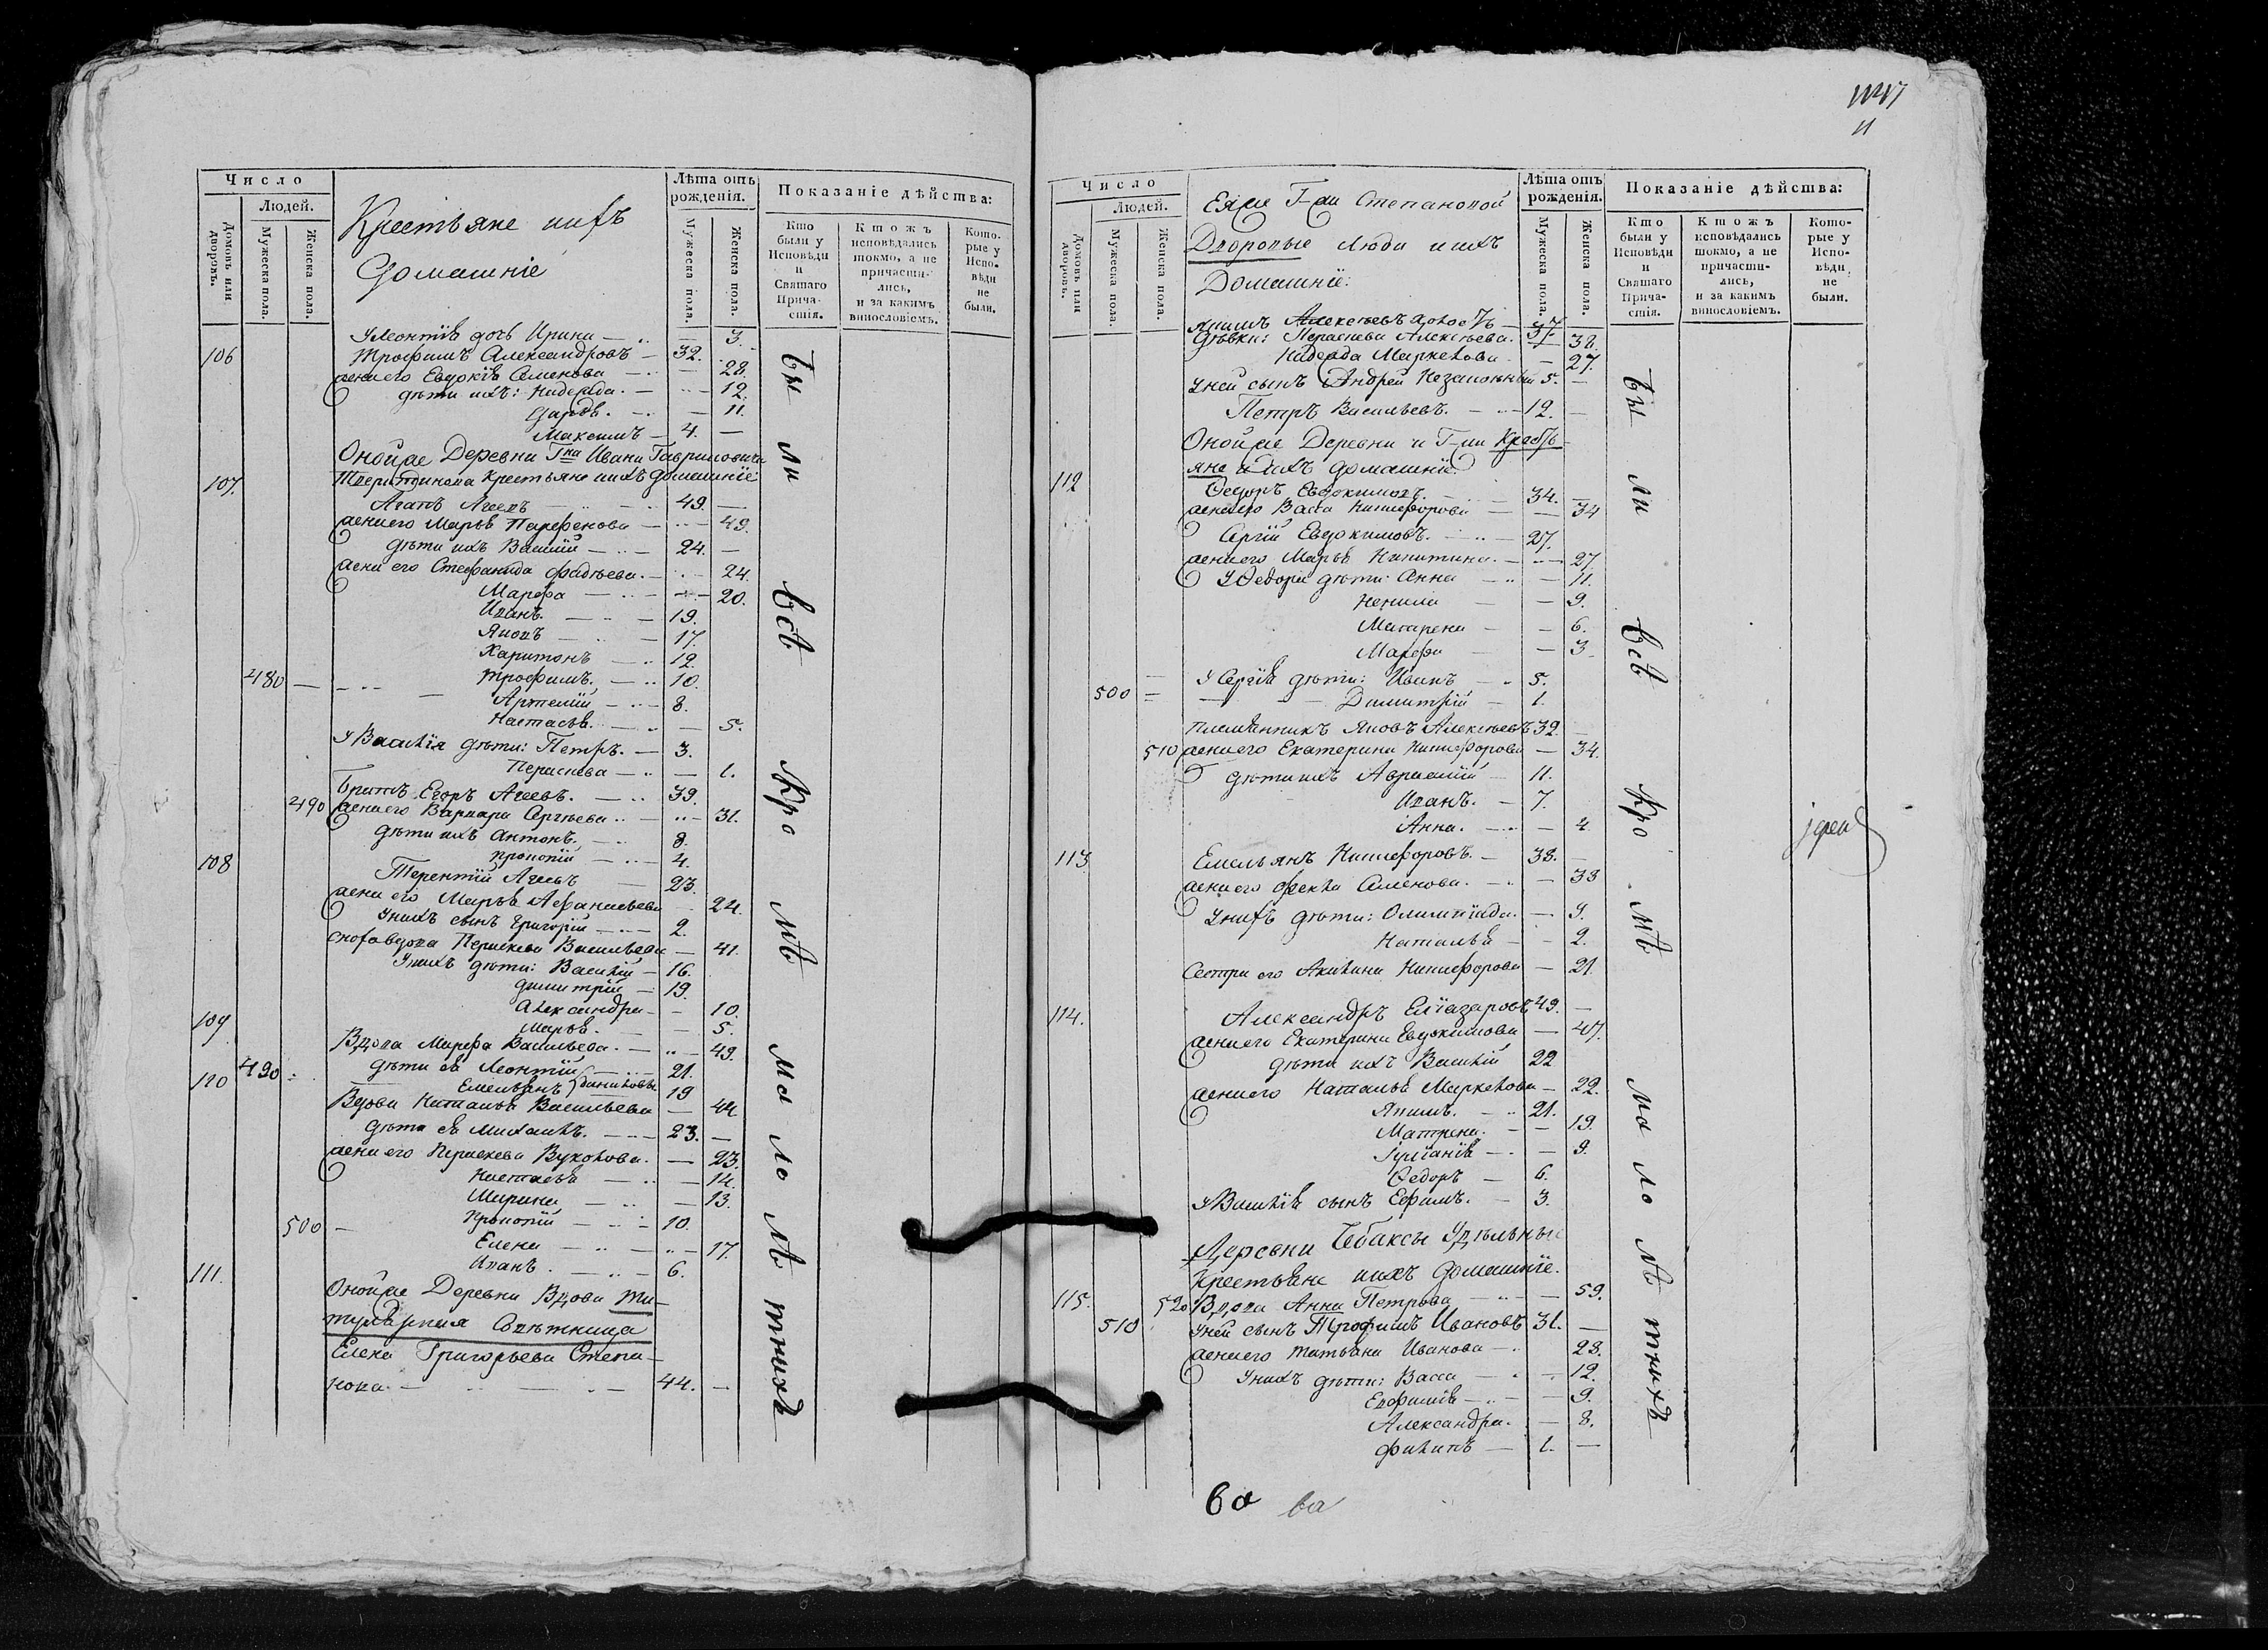 Число
Людей.
Домовъ или дворовъ.
Мужеска пола.
Женска пола.
Крестьяне ихъ
Домашніе
Лѣта отъ рожденія.
Мужеска пола.
Женска пола.
Показаніе дѣйства:
Кто были у Исповѣди и Святаго Причастія.
Ктожъ исповѣдались токмо, а не причастились, и за какимъ винословіемъ.
Которые у Исповѣди не были.
У Леонтія дочь Ирина — 3.
106 Трофимъ Александровъ — 32.
жена его Евдокія Семенова — 28.
дѣти ихъ: Надежда. — 12.
Дарья. — 11.
Максимъ — 4. —
Оной же Деревни Гна Ивана Гавриловича
107. крестьяне ихъ домашніе
Агапъ Агеевъ — 49. —
жена его Марья Парфенова — 49.
дѣти ихъ Василій — 24. —
жена его Стефанида Фадѣева. — 24.
Марфа — 20.
Иванъ. — 19.
Яковъ — 17.
Харитонъ — 12.
480 — Трофимъ. — 10.
Артемій — 8.
Настасья. — 5.
У Василія дѣти: Петръ. — 3.
Парасковья — 1.
Братъ Егоръ Агеевъ. — 39.
490 жена его Варвара Сергѣева — 31.
дѣти ихъ Антонъ. — 8.
Прокопій — 4.
108 Терентій Агеевъ — 23.
жена его Марья Афанасьева — 24.
У нихъ сынъ Григорій — 2.
сноха вдова Васильева — 41.
У нихъ дѣти: Василій — 16.
Димитрій — 19.
Александра — 10.
Марья. — 5.
109 Вдова Марфа Васильева. — 49.
дѣти ея Леонтій — 21.
110 490 Емельянъ 19
Вдова Наталья Васильева — 44.
дѣти ея Михаилъ. — 23. —
жена его Вуколова. — 23.
Настасья — 14.
Марина — 13.
500 — Прокопій — 10.
Елена — 17.
Иванъ. — 6.
111. Оной же Деревни Вдова Ти-
тулярная Совѣтница
Елена Григорьева Степа-
нова. — 44. —
Были всѣ кромѣ малолѣтнихъ
11
Число
Людей.
Домовъ или дворовъ.
Мужеска пола.
Женска пола.
Ея же Г-жи Степановой
Дворовые люди и ихъ
Домашніе:
Лѣта отъ рожденія.
Мужеска пола.
Женска пола.
Показаніе дѣйства:
Кто были у Исповѣди и Святаго Причастія.
Ктожъ исповѣдались токмо, а не причастились, и за какимъ винословіемъ.
Которые у Исповѣди не были.
Якимъ Алексѣевъ холостъ — 37.
Дѣвки: Алексѣева. — 38.
Надежда Маркелова — 27.
У ней сынъ Андрей Незаконный 5. —
Петръ Васильевъ. — 12. —
Оной же Деревни и Г-жи Кресть-
яне и ихъ домашніе
112 Ѳедоръ Евдокимовъ. — 34. —
жена его Васса Никифорова — 34
Сергій Евдокимовъ. — 27.
жена его Марья Никитина. — 27.
У Ѳедора дѣти: Анна — 11.
Ненила — 9.
Матрена — 6.
Марфа — 3.
500 — У Сергія дѣти: Иванъ — 5.
Димитрій — 1.
племянникъ Яковъ Алексѣевъ 32. —
510 жена его Екатерина Никифорова — 34.
дѣти ихъ — 11.
Иванъ. — 7.
Анна. — 4
113 Емельянъ Никифоровъ. — 38. —
жена его Фекла Семенова. — 38
У нихъ дѣти: Олимпіада. — 9.
Наталья — 2.
Сестра его Акилина Никифорова — 21.
114. Александръ Еліазаровъ 49. —
жена его Екатерина Евдокимова — 47.
дѣти ихъ Василій 22
жена его Наталья Маркелова — 22.
Якимъ. — 21.
Матрена. — 19.
Іуліанія — 9.
Ѳедоръ — 6.
У Василія сынъ Ефимъ. — 3.
Деревни Чебаксы Удѣльные
Крестьяне ихъ домашніе.
115. 520 Вдова Анна Петрова — 59.
510 У ней сынъ Трофимъ Ивановъ 31. —
жена его Татьяна Иванова — 28.
У нихъ дѣти: Васса — 12.
Евфимія — 9.
Александра. — 8.
Филипъ — 1. —
Были всѣ кромѣ малолѣтныхъ
ва ва